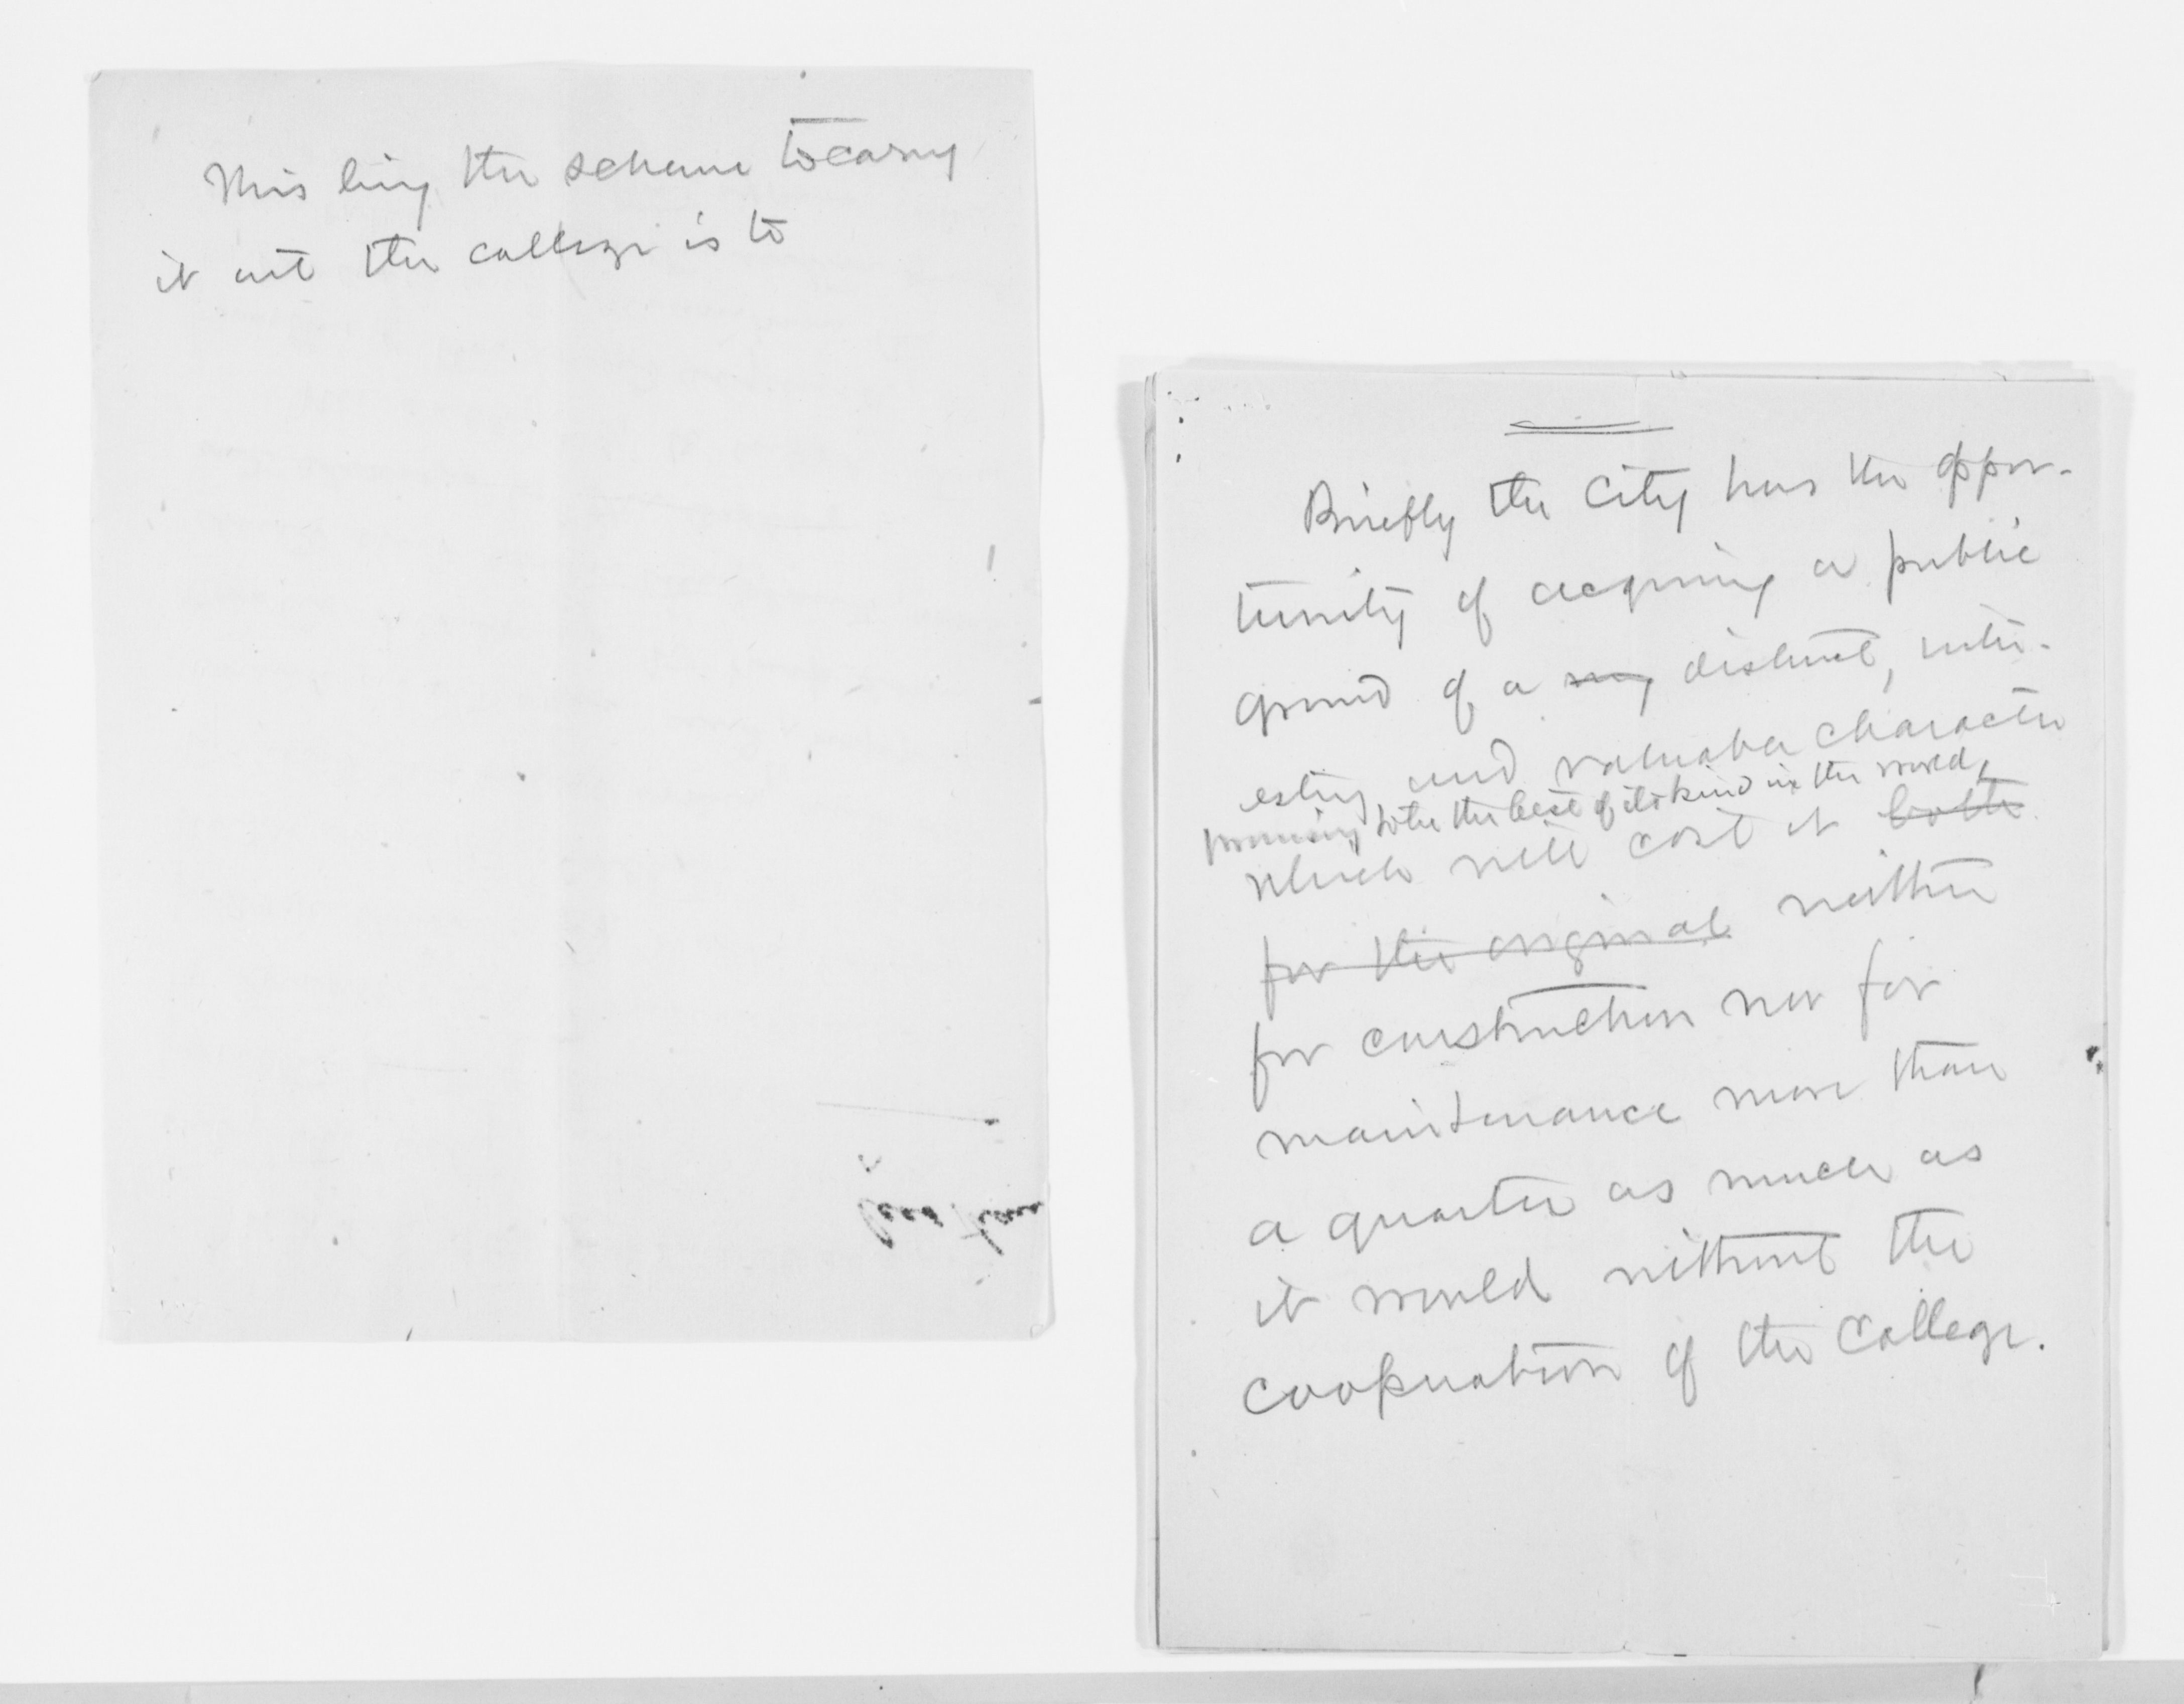 This being the scheme to carry
it out the college is to
less than
Briefly the City has the oppor-
tunity of acquiring a public
ground of a very distinct, inter-
esting and valuable character
promising to be the best of its kind in the world,
which will cost it both
for the original neither
for construction nor for
maintenance more than
a quarter as much as
it would without the
cooperation of the College.